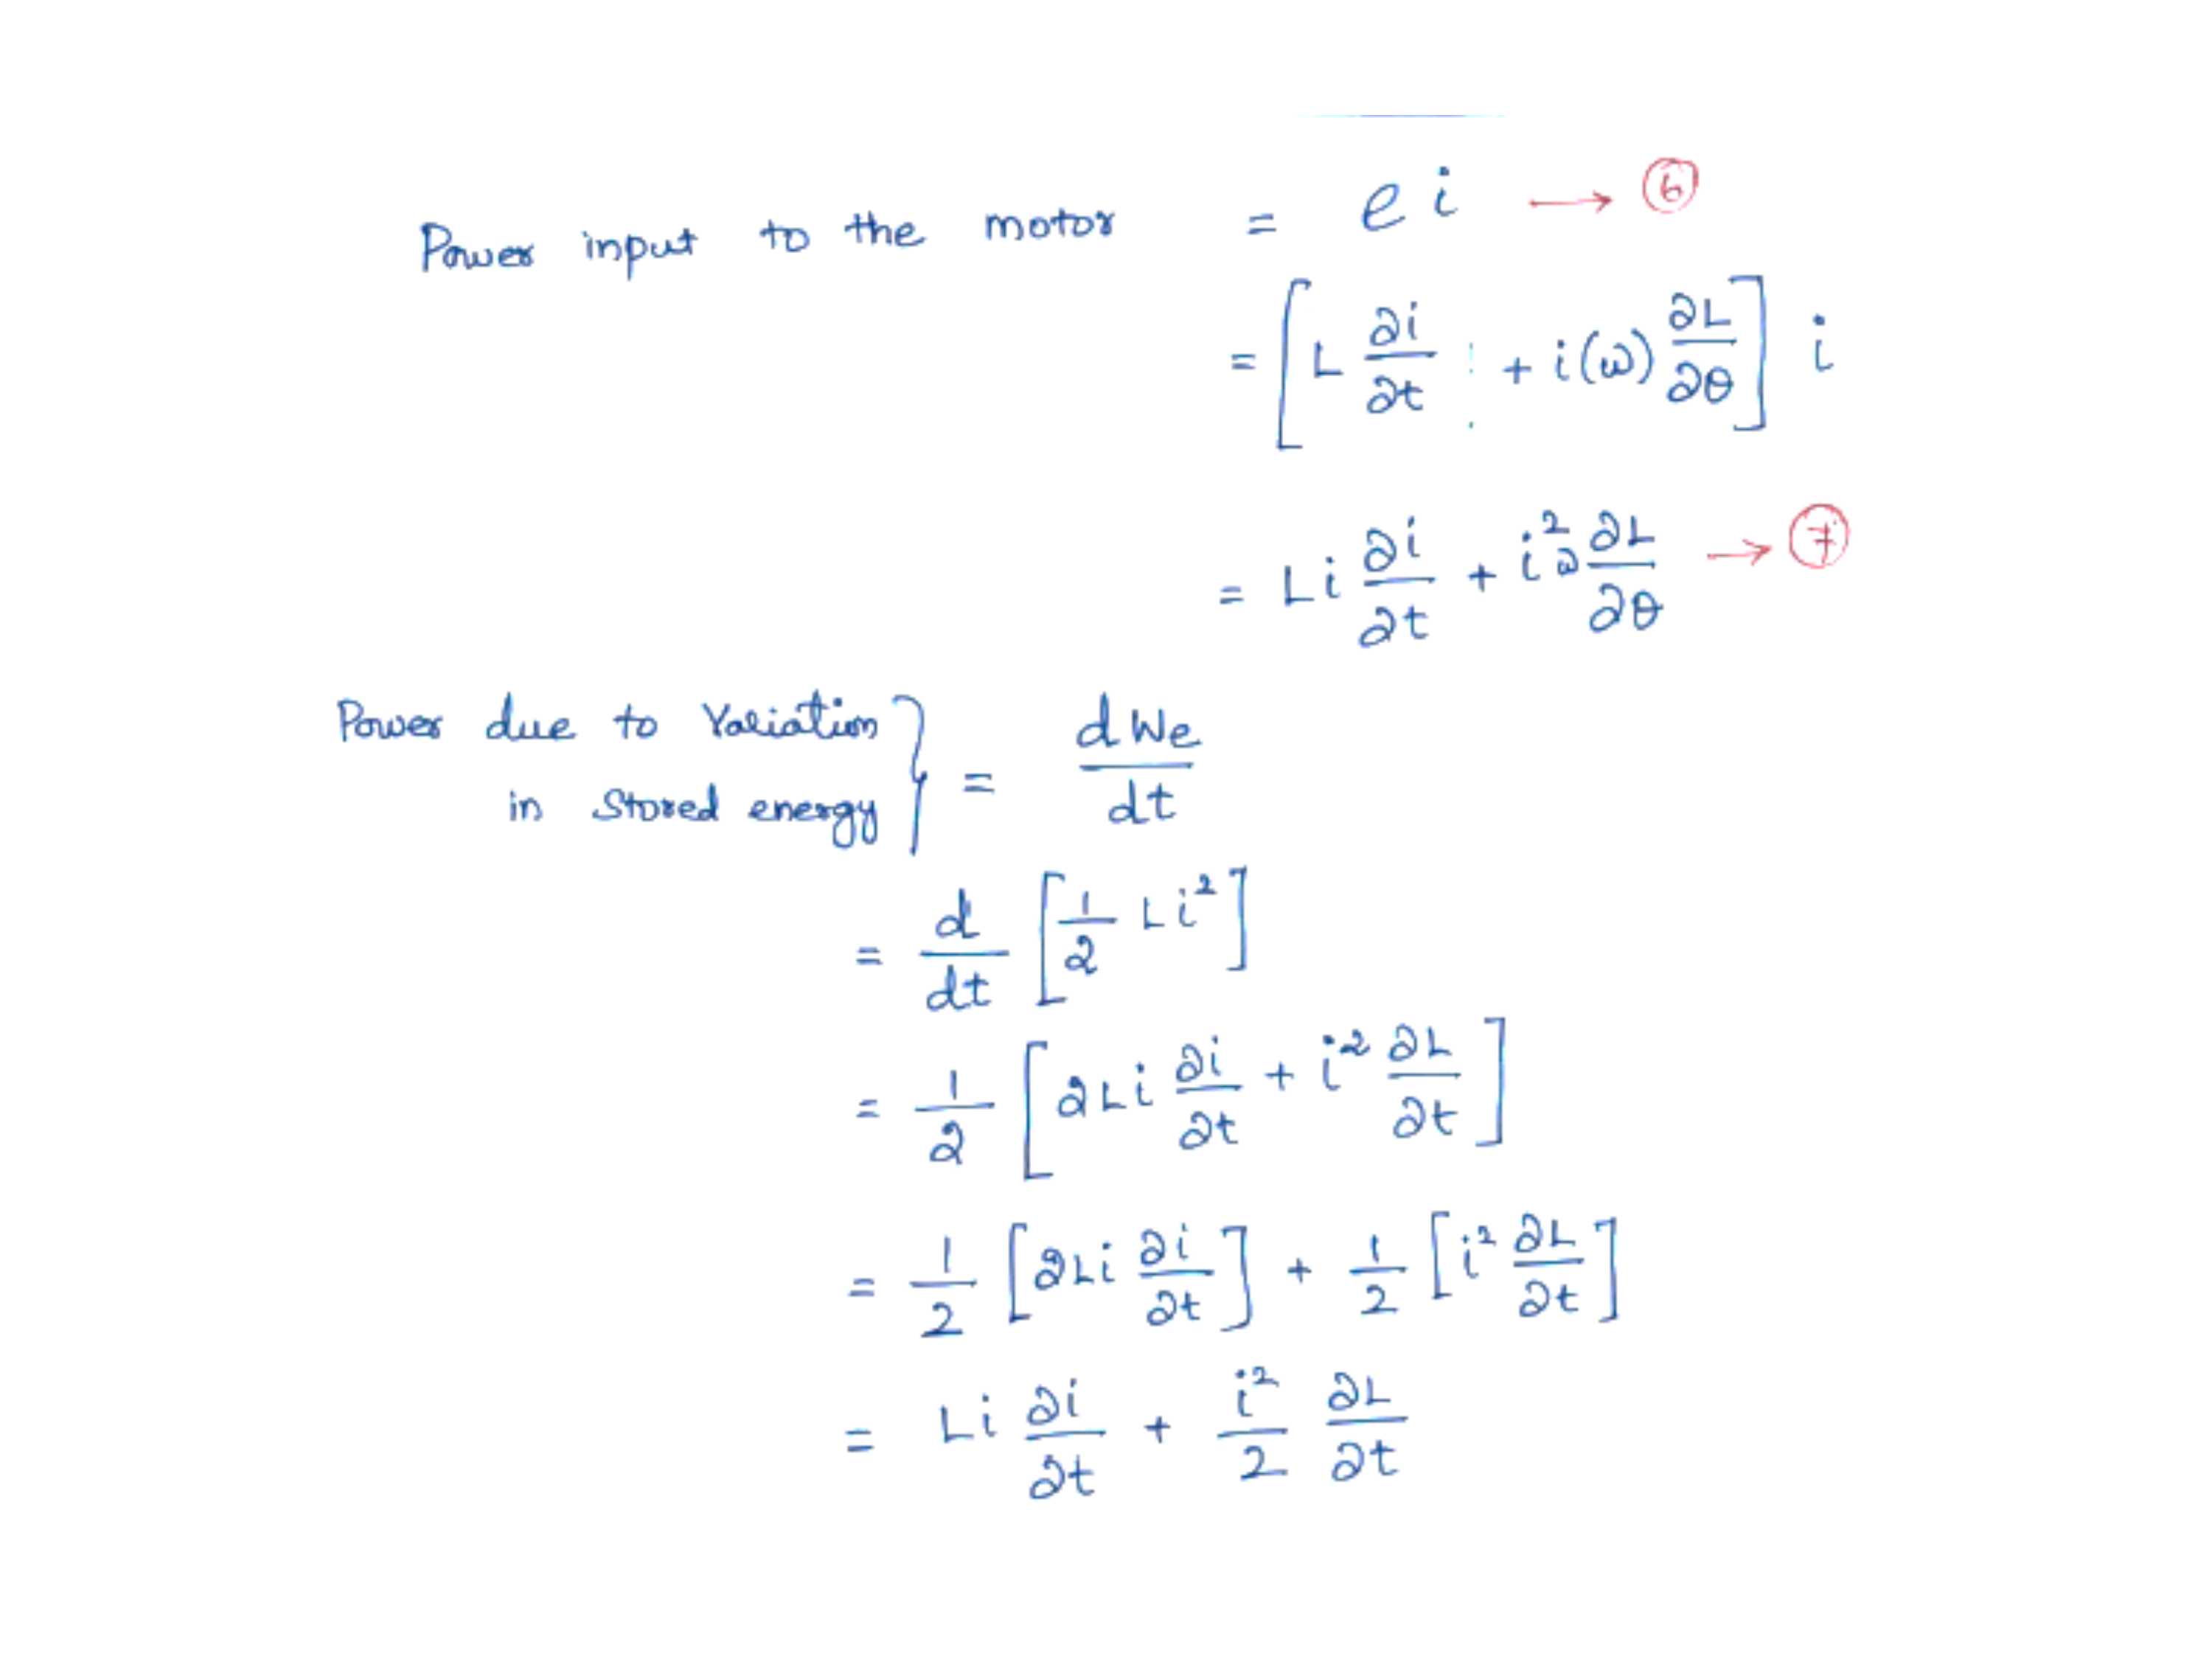 Power input to the motor = e i → ⑥
= [ L ∂i/∂t + i(ω) ∂L/∂θ ] i
= Li ∂i/∂t + i²ω ∂L/∂θ → ⑦
Power due to Variation
in Stored energy } = dWe/dt
= d/dt [ 1/2 Li² ]
= 1/2 [ 2Li ∂i/∂t + i² ∂L/∂t ]
= 1/2 [ 2Li ∂i/∂t ] + 1/2 [ i² ∂L/∂t ]
= Li ∂i/∂t + i²/2 ∂L/∂t